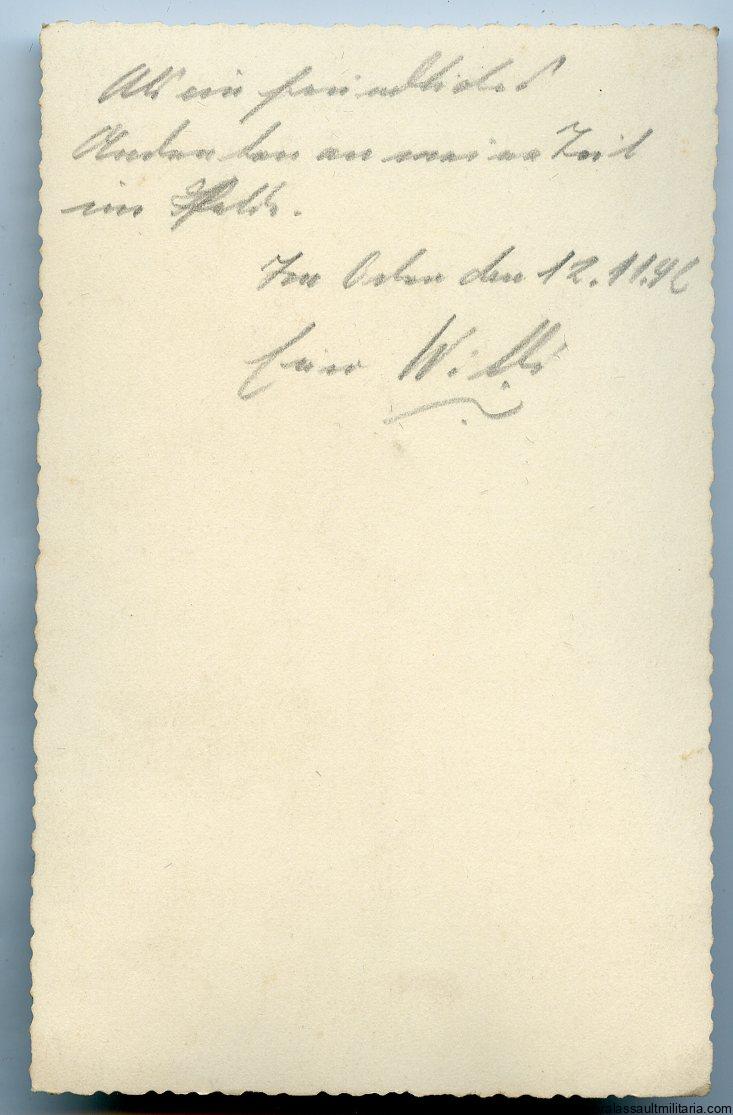 Als ein freundliches
Andenken an meine Zeit
im Felde.
Im Osten den 12.11.42
Euer Willi
alassaultmilitaria.com